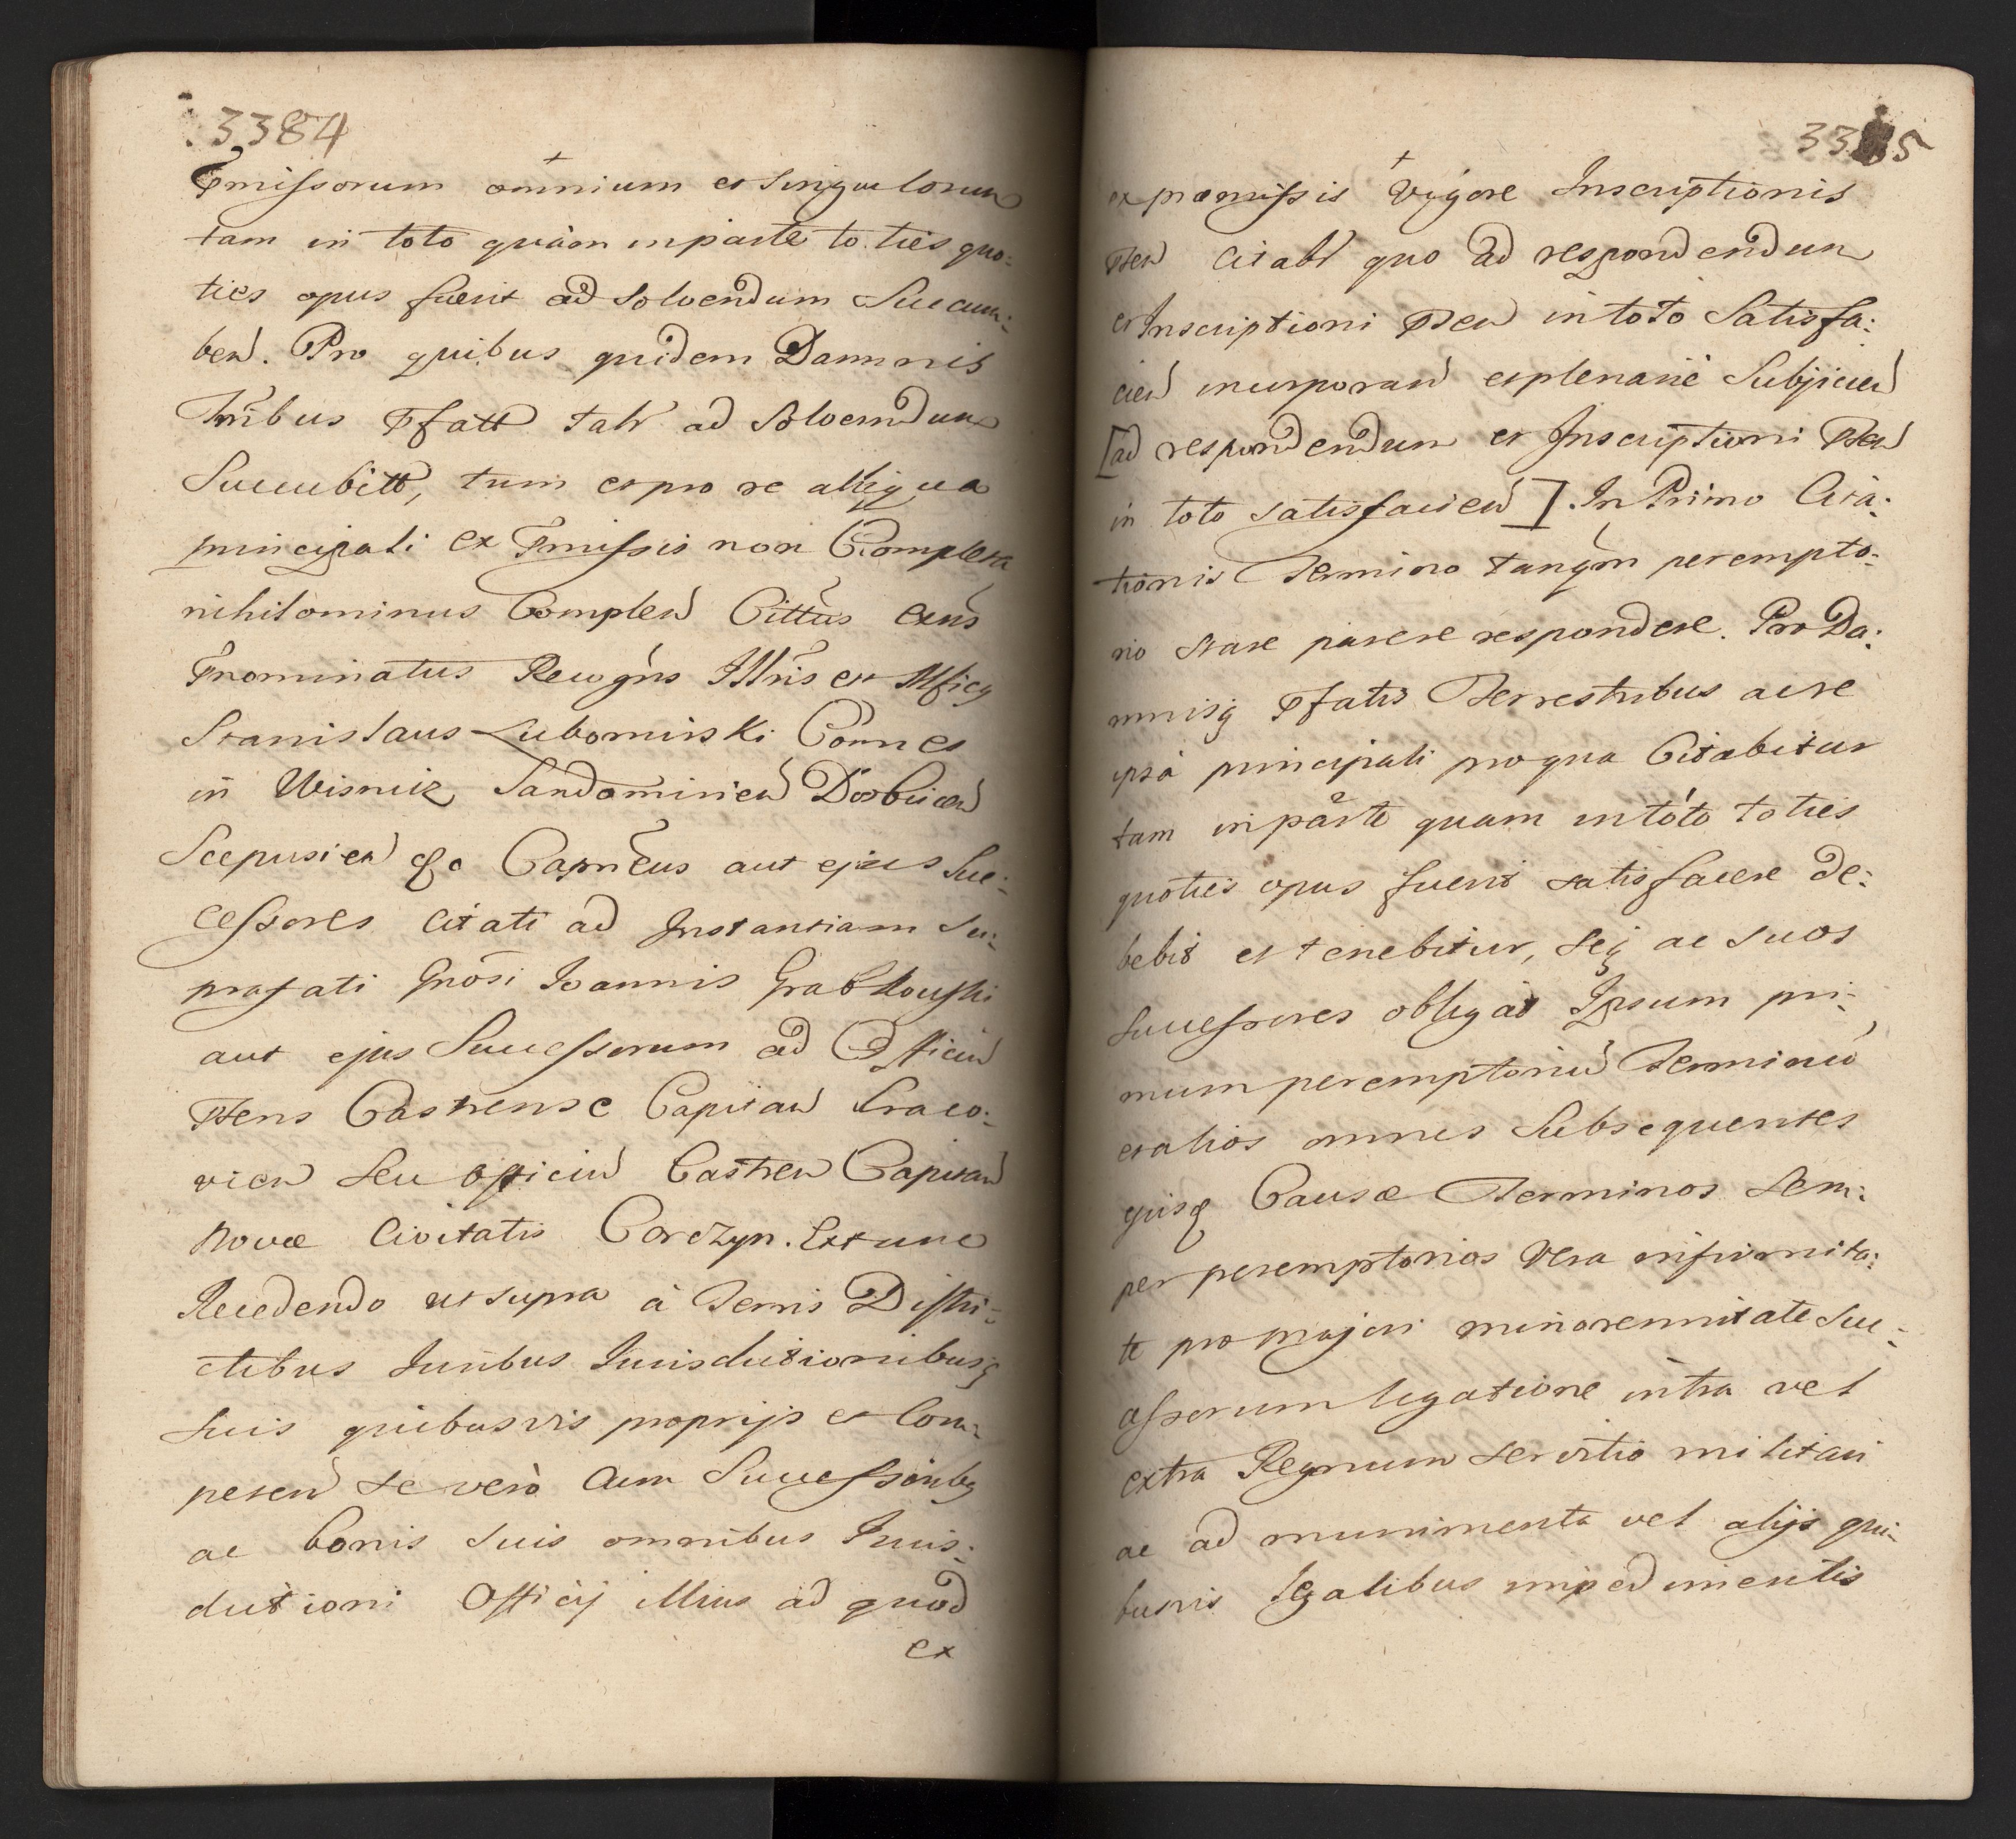 3384
Pmissorum omnium et Singulorum
tam in toto quàm in parte to ties quo:
ties opus fuerit ad solvendum Succum:
ben. Pro quibus quidem Damnis
Tribus Pfatt talr ad Solvendum
Succubitt, tum et pro re aliqua
principali ex Pmissis non Completa
nihilominus Complen Cittus erus
Pnominatus Recogns Illris et Mficq
Stanislaus Lubomirski Comes
in Wisnicz Sandomirien Dobcicen
Scepusien &c Capneus aut ejus Suc:
cessores Citati ad Instantiam Su:
prafati Gnosi Joannis Grabkowski
aut ejus Successorum ad Officiu
Ptens Castrense Capitan Craco:
vien seu officiu Castren Capitan
Novæ Civitatis Corczyn. Ex tunc
Recedendo ut supra à Terris Distri:
ctibus Juribus Jurisdictionibusq
suis quibusvis proprijs et Com:
peten se verò cum Successoribq
ac bonis suis omnibus Juris:
dictioni Officij illius ad quod
ex
3385
ex præmissis Vigore Inscriptionis
Pten Citabr quo ad respondendum
et Inscriptioni Pten in toto Satisfa:
cien incorporan et plenarie Subjicien
[ad respondendum et Inscriptioni Pten
in toto satisfacien]. In Primo Cita:
tionis Termino tanqm perempto:
rio stare parere respondere. Pro Da:
mnisq Pfatis Terrestribus ac re
ipsa principali pro qua Citabitur
tam in parte quam in toto toties
quoties opus fuerit satisfacere de:
bebit et tenebitur, seq ac suos
Successores obligat Ipsum pri:
mum peremptoriu Terminu
et alios omnes Subsequentes
quisq Causæ Terminos Sem:
per peremptorios Vera infirmita:
te pro majori minorennitate Suc:
cessorum legatione intra vel
extra Regnum servitio militari
ac ad munimenta vel alijs qui:
busvis legalibus impedimentis